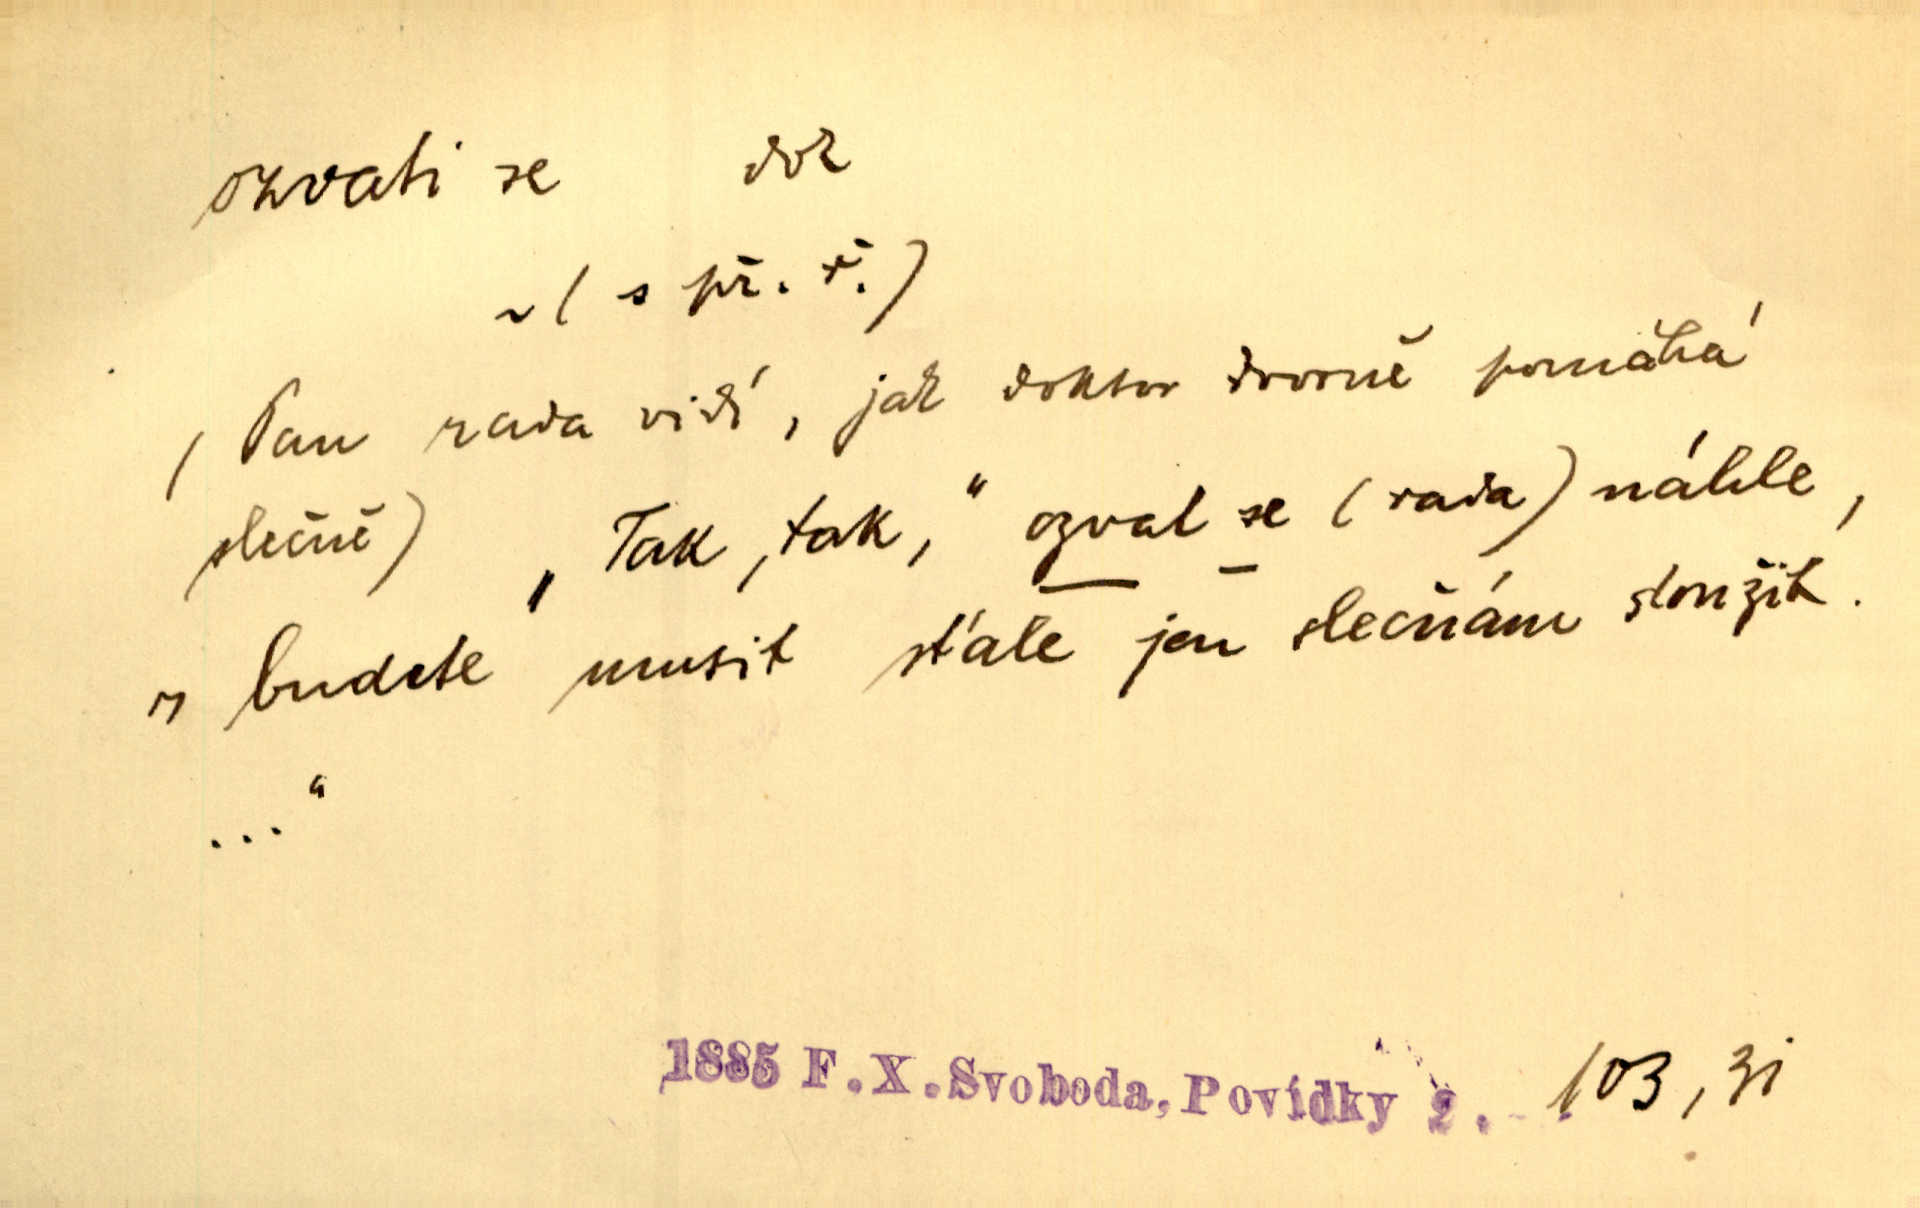 ozvati se dok
~ ( s př. ř. )
( Pan rada vidí, jak doktor dvorně pomáhá
slečně) „Tak, tak,“ ozval se (rada) náhle,
„budete musit stále jen slečnám sloužit.
...“
1885 F.X.Svoboda, Povídky 2. 103, 31